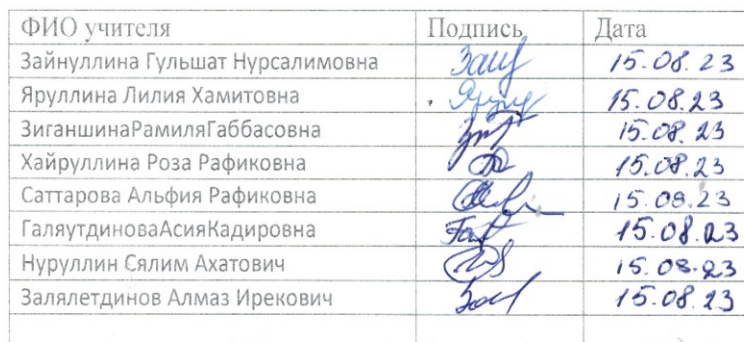 ФИО учителя Подпись Дата
Зайнуллина Гульшат Нурсалимовна 15.08.23
Яруллина Лилия Хамитовна 15.08.23
ЗиганшинаРамиляГаббасовна 15.08.23
Хайруллина Роза Рафиковна 15.08.23
Саттарова Альфия Рафиковна 15.08.23
ГаляутдиноваАсияКадировна 15.08.23
Нуруллин Сялим Ахатович 15.08.23
Залялетдинов Алмаз Ирекович 15.08.23